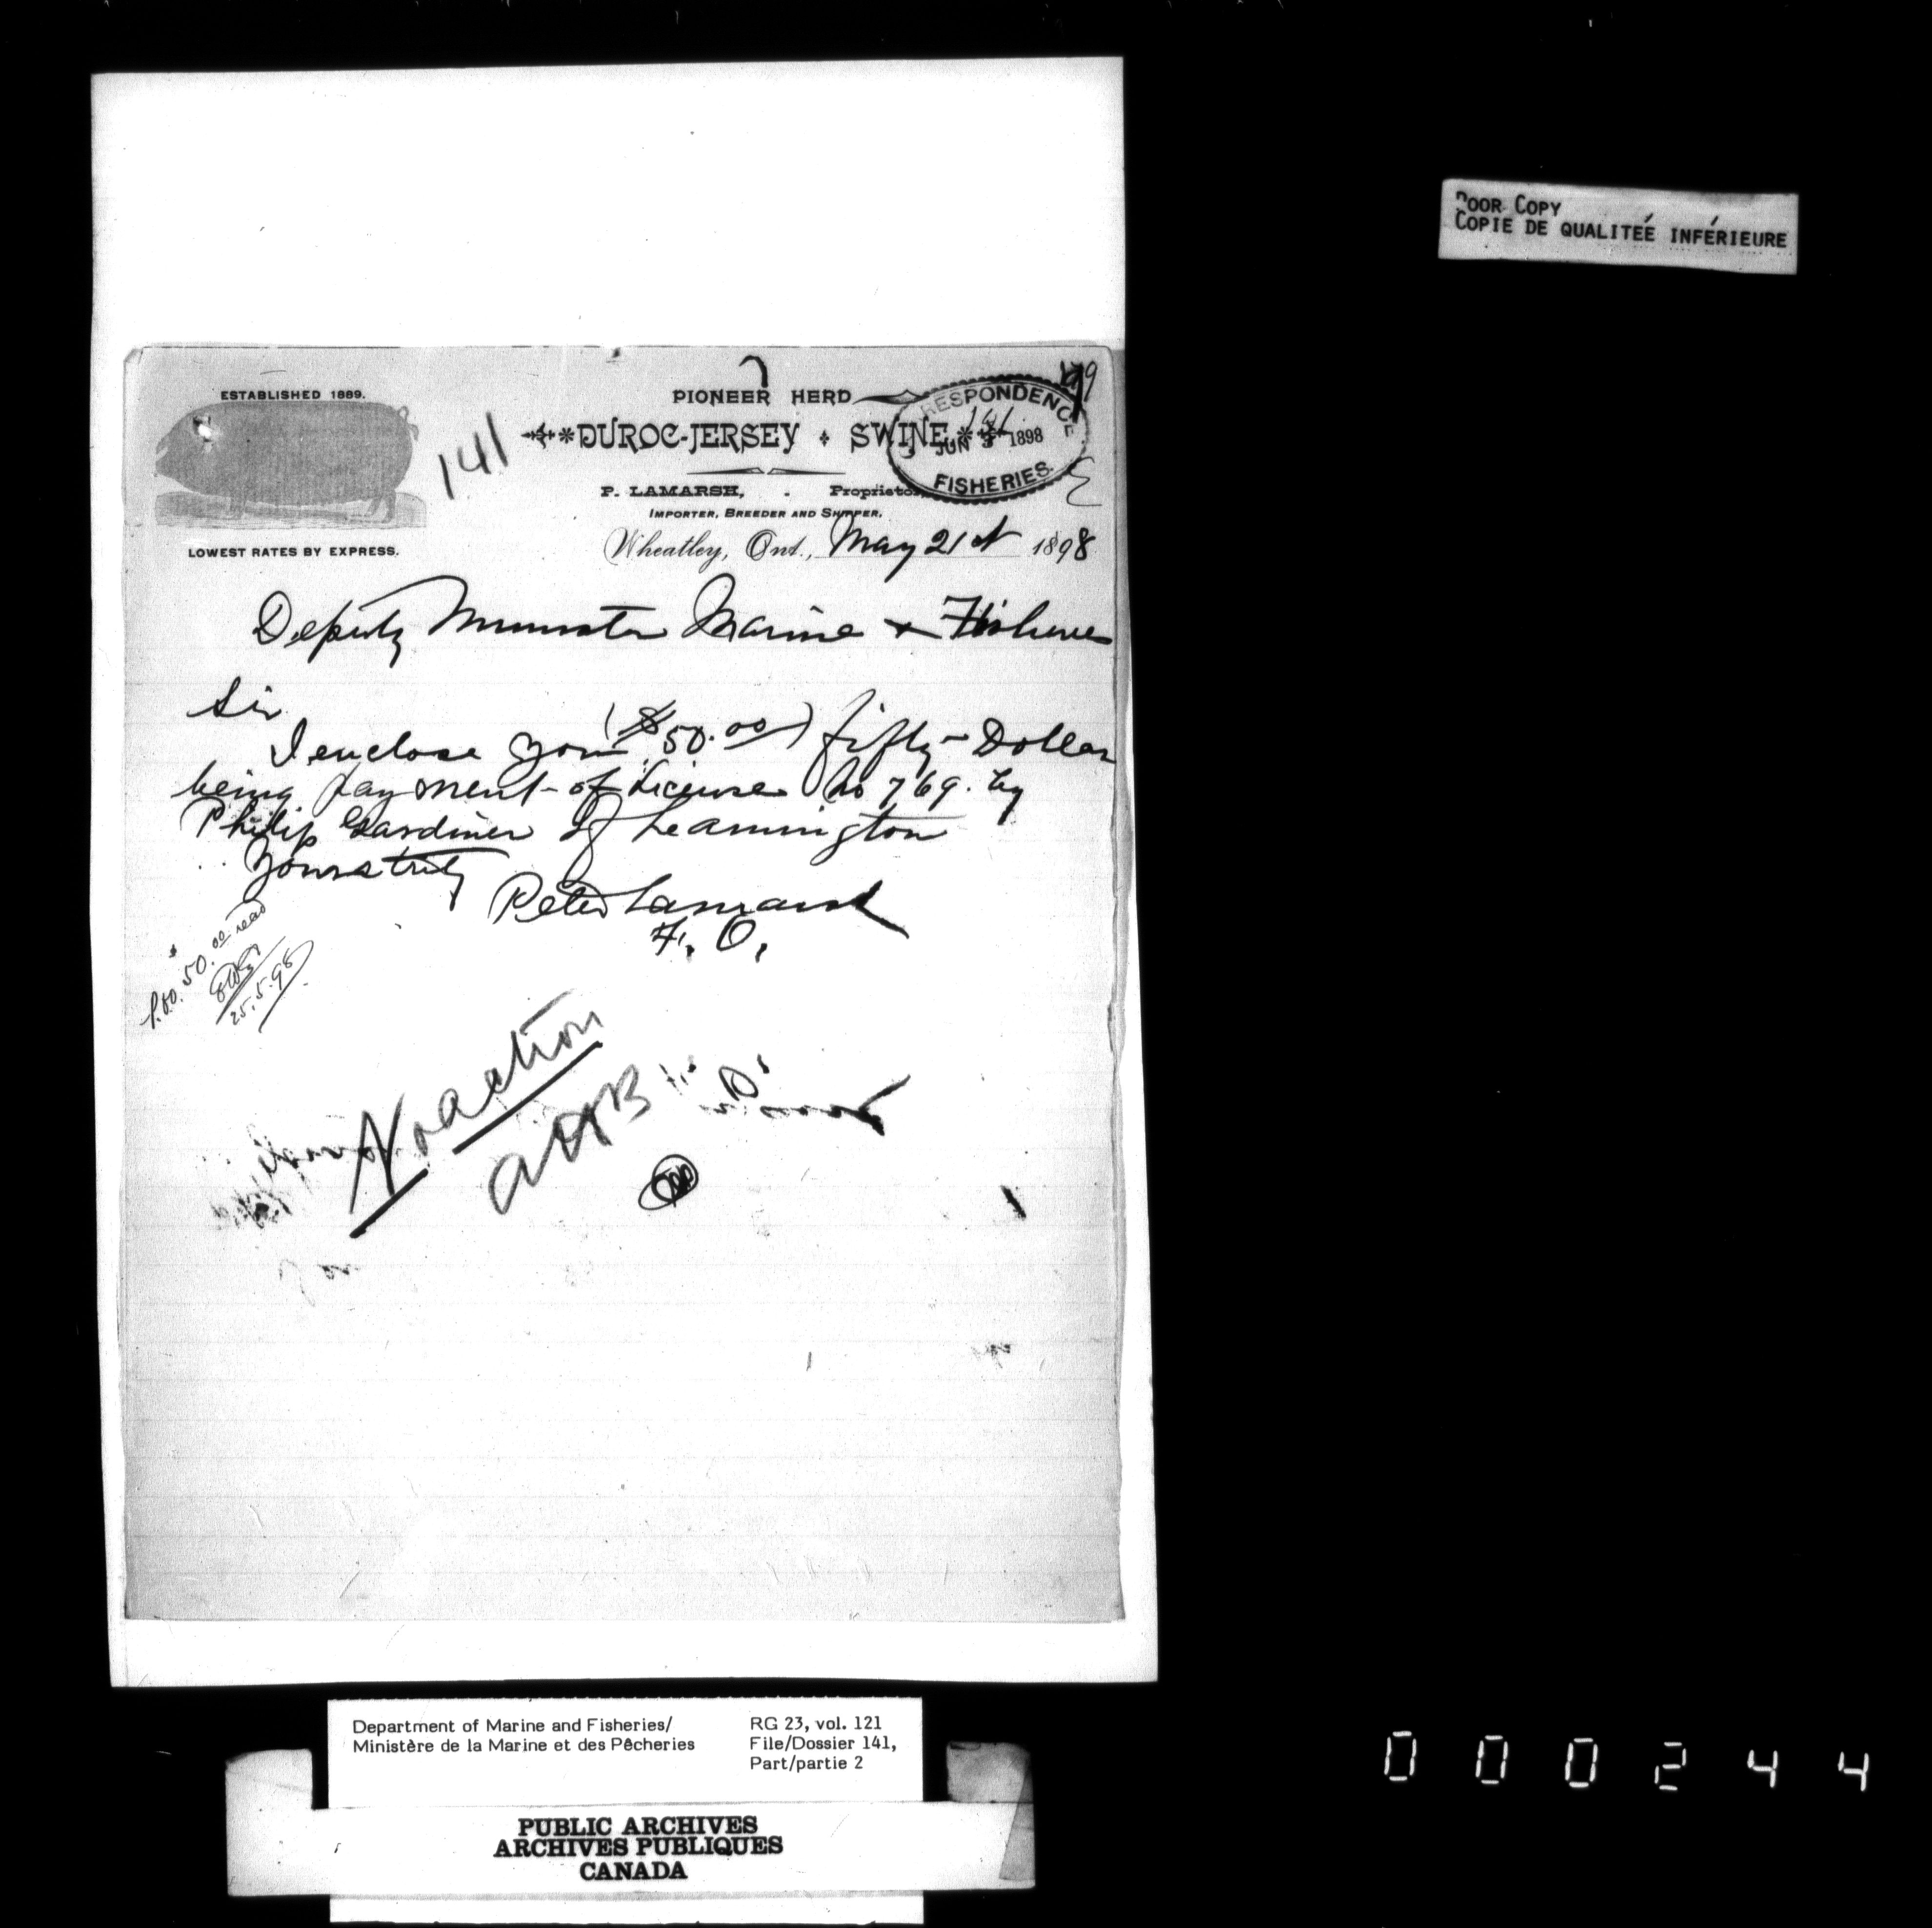 Poor Copy
Copie de qualiteé inférieure
179
ESTABLISHED 1889.
LOWEST RATES BY EXPRESS.
141
PIONEER HERD
DUROC-JERSEY SWINE
P. LAMARSH, Proprietor,
IMPORTER, BREEDER AND SHIPPER.
RESPONDENCE
141
JUN 3 1898
FISHERIES.
Wheatley, Ont., May 21st 1898
Deputy Minister Marine + Fisheries
Sir
I enclose you ($50.00) fifty Dollar
being payment of License No 769. by
Philip Gardiner of Leamington
Yours truly
Peter Lamarsh
F. O.
$50.00 read
25.5.98
No action
Department of Marine and Fisheries/
Ministère de la Marine et des Pêcheries
RG 23, vol. 121
File/Dossier 141,
Part/partie 2
PUBLIC ARCHIVES
ARCHIVES PUBLIQUES
CANADA
000244